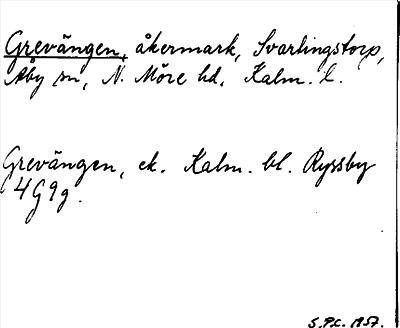 Grevängen, åkermark, Svartingstorp,
Åby sn, N. Möre hd, Kalm. l.
Grevängen, ek. Kalm. bl. Ryssby
4G9g.
S.P.C. 1957.